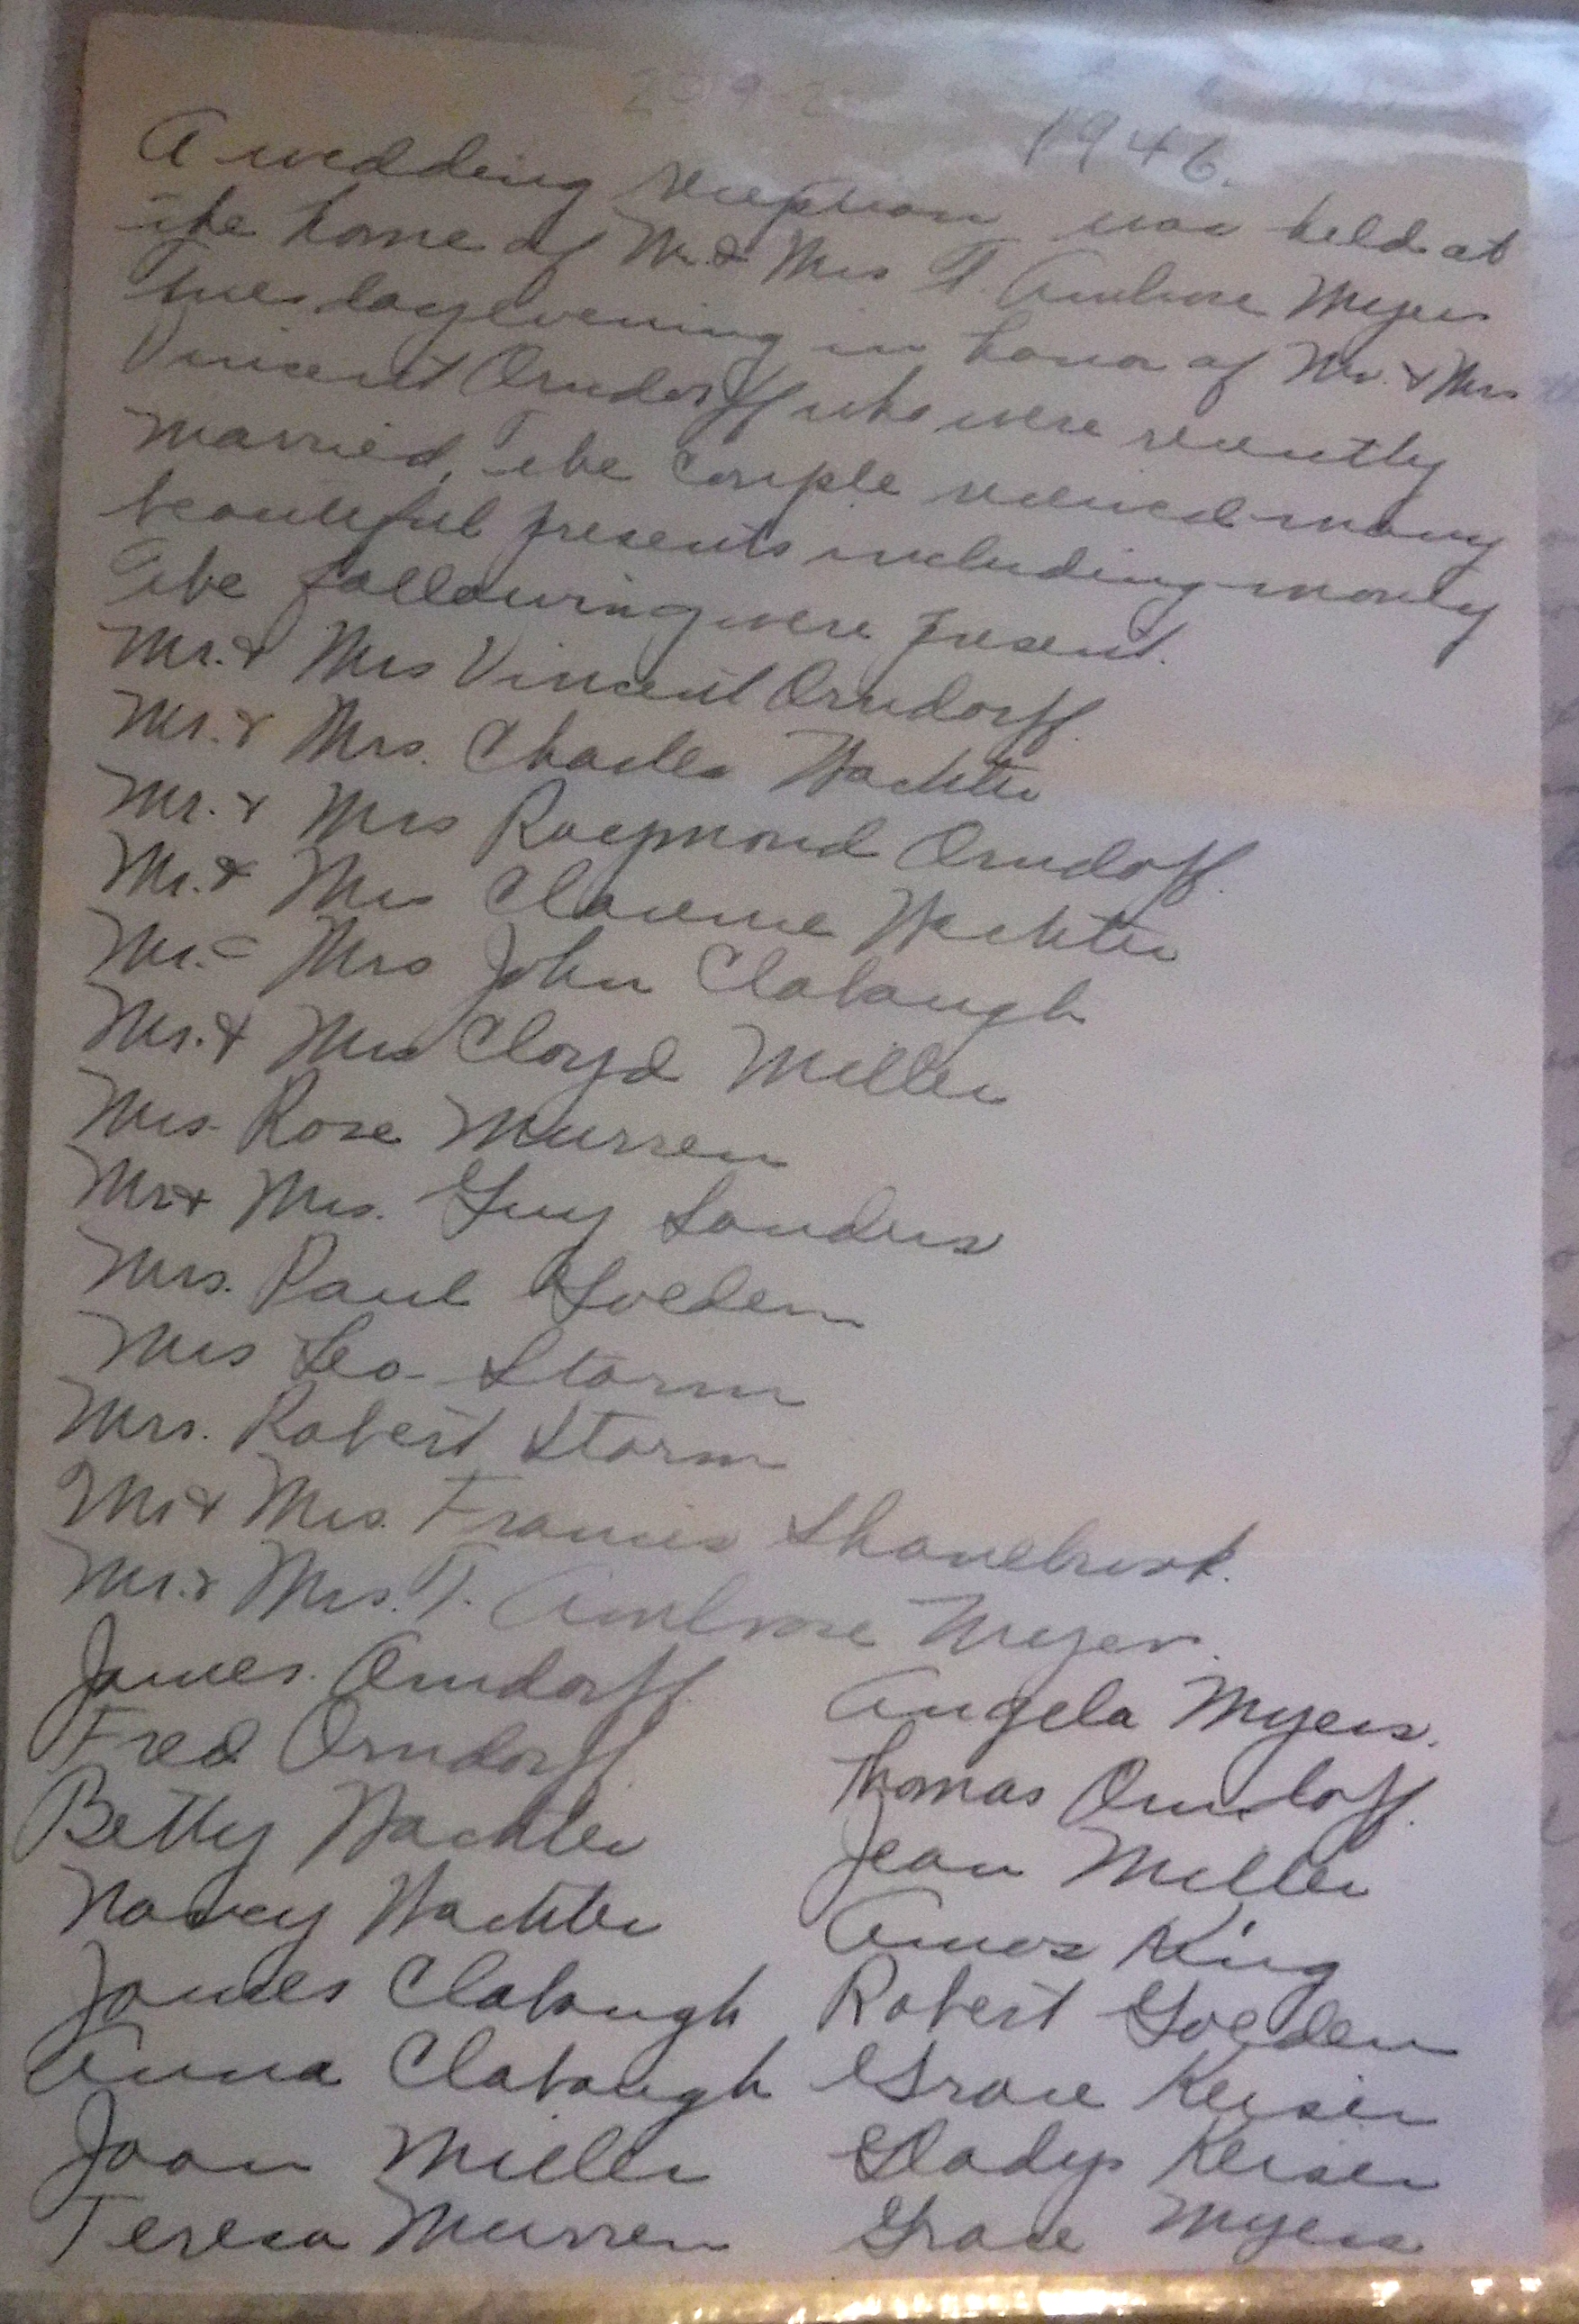 1946.
A wedding reception was held at
the home of Mr. & Mrs T. Ambrose Myers
Tuesday evening in honor of Mr. & Mrs
Vincent Orndorff who were recently
married, The couple received many
beautiful presents including money
The following were present.
Mr. & Mrs Vincent Orndorff.
Mr. & Mrs. Charles Wachter
Mr. & Mrs Raymond Orndorff.
Mr. & Mrs Clarence Wachter
Mr. & Mrs John Clabaugh
Mr. & Mrs Cloyd Miller
Mrs. Rose Murren
Mr & Mrs. Guy Sanders
Mrs. Paul Golden
Mrs Leo Storm
Mrs. Robert Storm
Mr & Mrs. Francis Shanebrook.
Mr. & Mrs. T. Ambrose Myers.
James Orndorff.
Fred Orndorff
Betty Wachter
Nancy Wachter
James Clabaugh
Anna Clabaugh
Joan Miller
Teresa Murren
Angela Myers.
Thomas Orndorff.
Jean Miller
Amos King
Robert Golden
Grace Keiser
Gladys Keiser
Grace Myers